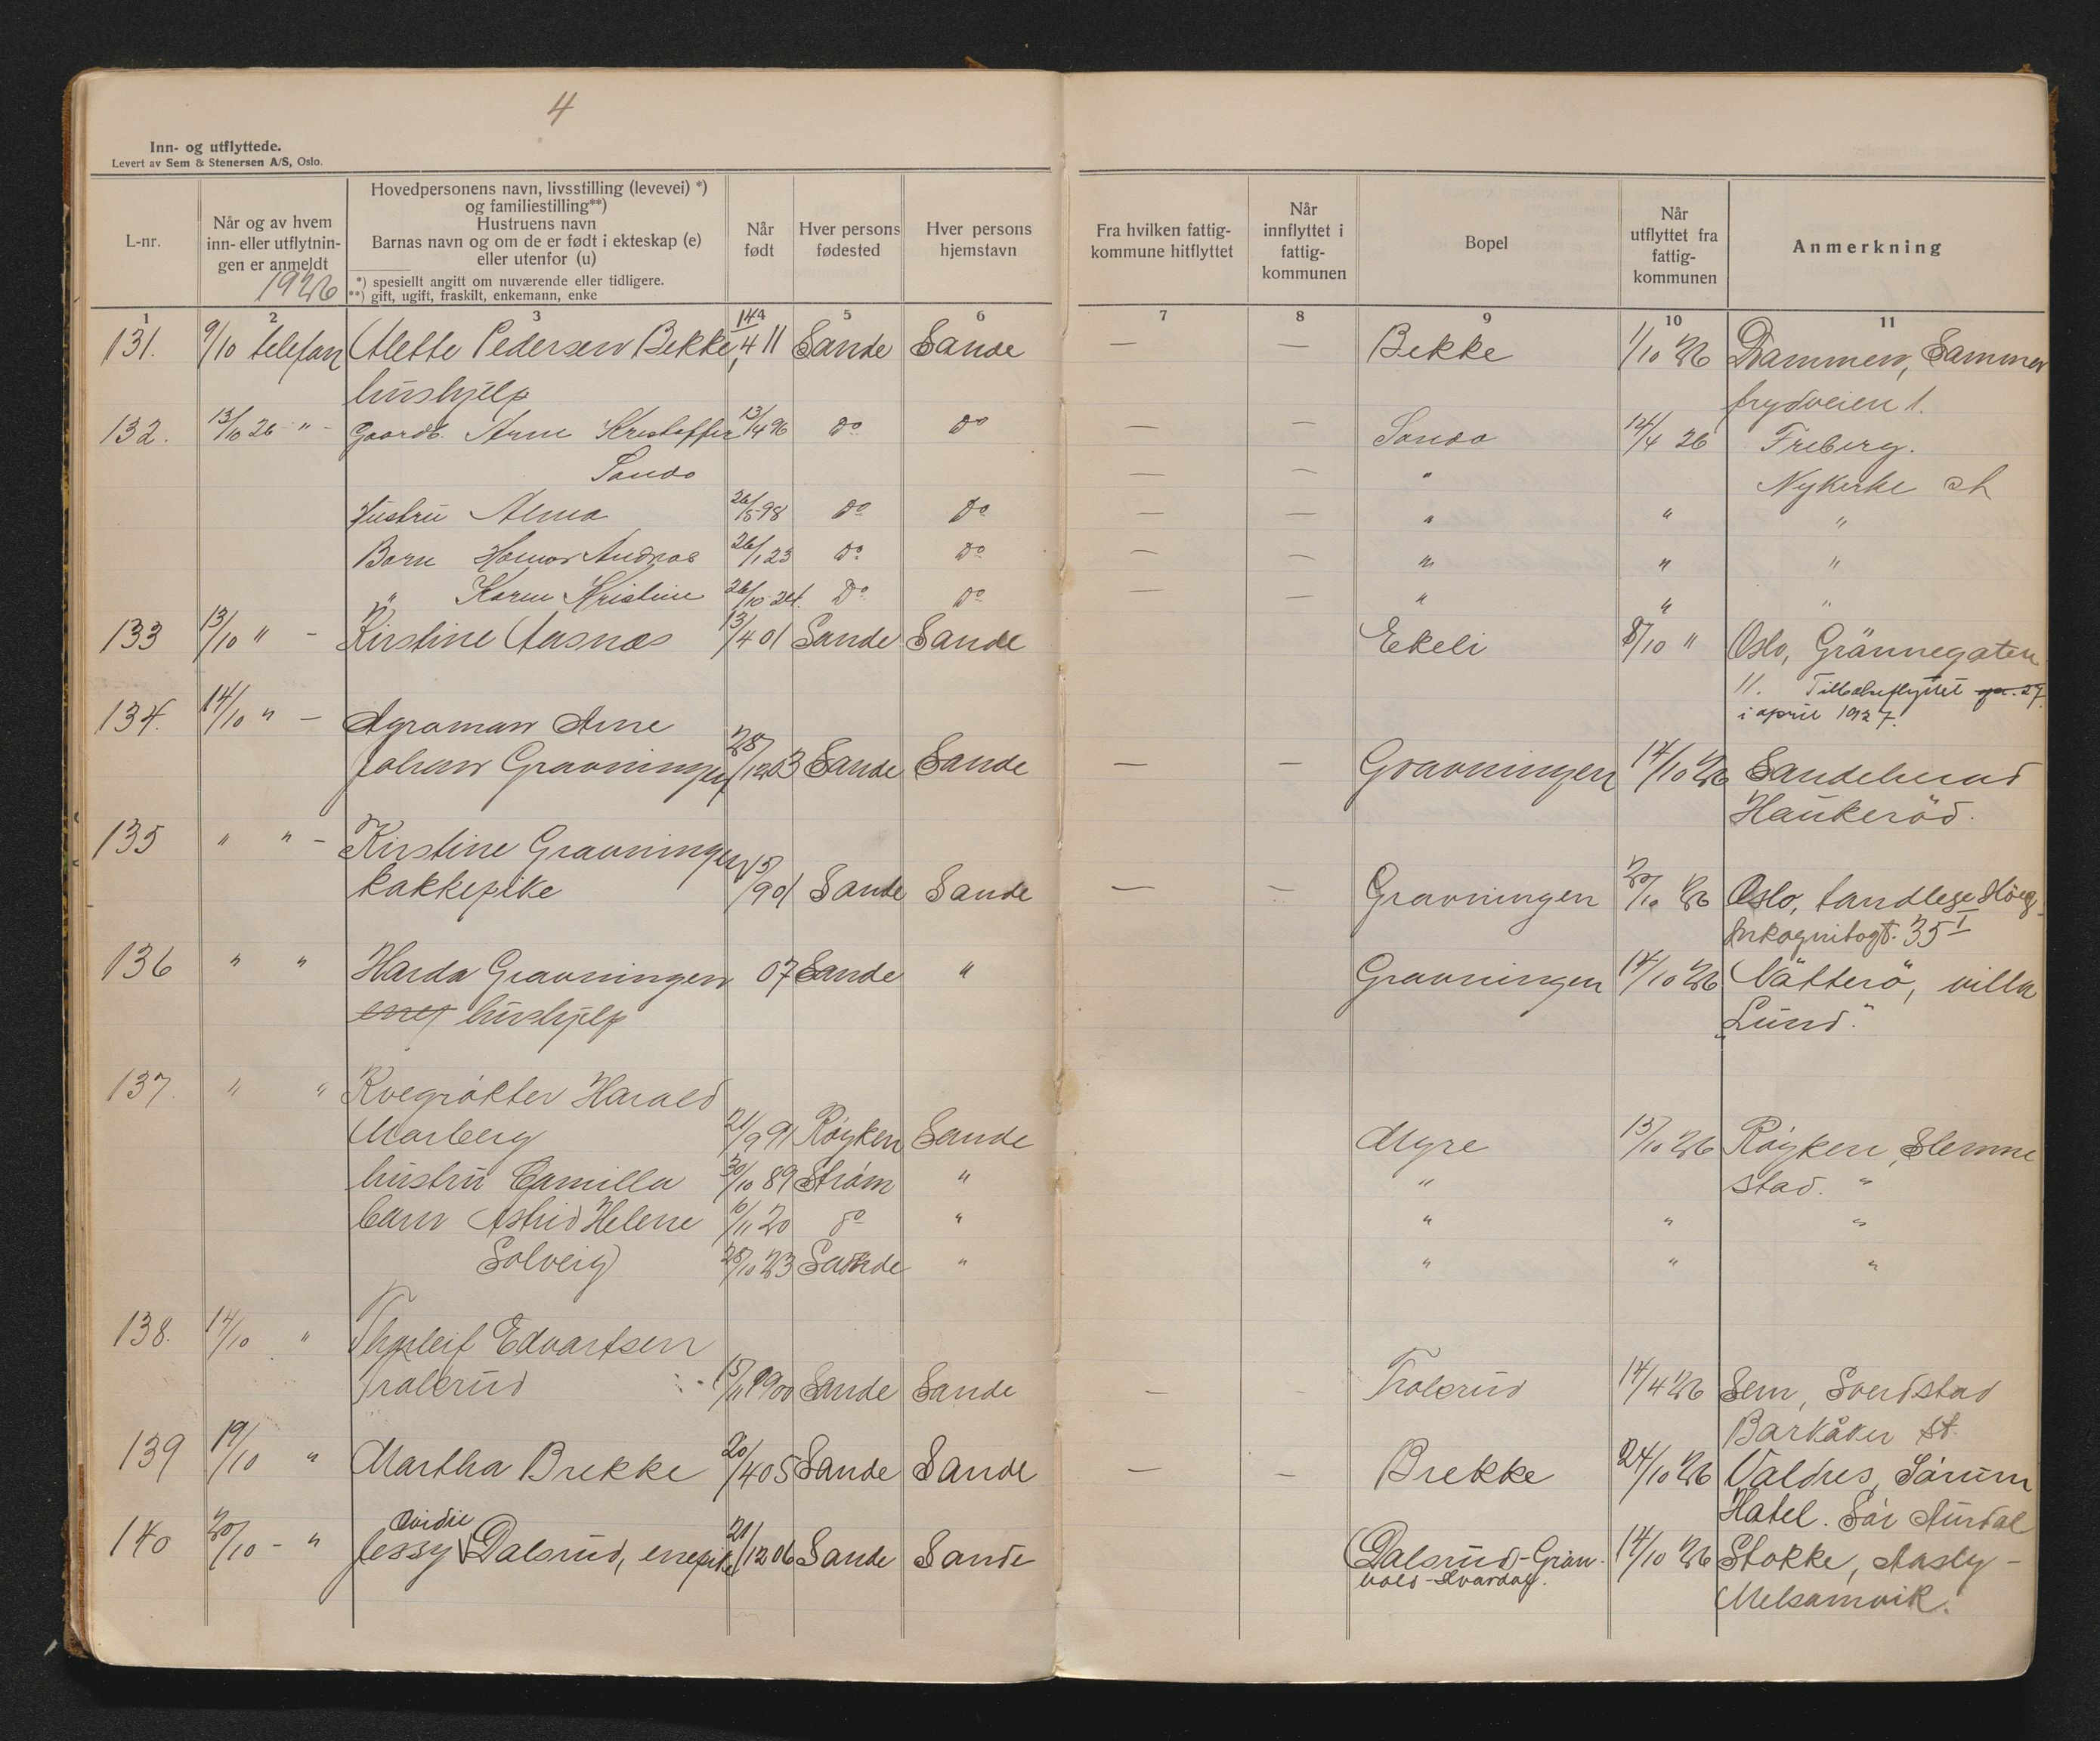 4
Inn- og utflyttede.
Levert av Sem & Stenersen A/S, Oslo.
L-nr.
Når og av hvem inn- eller utflytnin-gen er anmeldt
1926
Hovedpersonens navn, livsstilling (levevei) *)
og familiestilling**)
Hustruens navn
Barnas navn og om de er født i ekteskap (e)
eller utenfor (u)
*) spesielt angitt om nuværende eller tidligere.
**) gift, ugift, fraskilt, enkemann, enke
Når født
Hver persons fødested
Hver persons hjemstavn
Fra hvilken fattig-kommune hitflyttet
Når innflyttet i fattig-kommunen
Bopel
Når utflyttet fra fattig-kommunen
Anmerkning
1 2 3 5 6 7 8 9 10 11
131. 9/10 telefon Alette Pedersen Bekke, 14/4 11 Sande Sande — — Bekke 1/10 26 Drammen, Sommer
hushjelp frydveien 1.
132. 13/10 26 " - Gaardb. Arne Kristoffer 13/4 96 do do — — Sando 14/4 26 Freberg.
Sando — — " Nykirke st
Hustru Alma 26/5 98 do do — — " " "
Barn Andreas 26/1 23 do do — — " " "
" Karen Kristine 26/10 24. Do do — — " " "
133 13/10 " - Kirstine Aasnæs 13/4 01 Sande Sande Ekeli 8/10 " Oslo, Grännegaten
11. Tilbakeflyttet
i april 1927.
134. 14/10 " - Agronom Arne
Johan Gravningen 28/12 03 Sande Sande — — Gravningen 14/10 26 Sandeherad
Haukeröd.
135 " " - Kirstine Gravningen
kokkepike 15/9 01 Sande Sande — — Gravningen 20/10 26 Oslo, tandlege Höeg
Inkognitogt. 35 I
136 " " Harda Gravningen 07 Sande " Gravningen 14/10 26 Nötterö, villa
hushjelp "Lund."
137. " " Kvegrökter Harald
Morberg 21/9 91 Röyken Sande Myre 15/10 26 Röyken, Slemme
hustru Camilla 30/10 89 Ström " " stad. "
barn Astrid Helene 10/11 20 do " " " "
Solveig 28/10 23 Sande " " " "
138. 14/10 " Thorleif Edvartsen
Trolerud 15/11 1900 Sande Sande — — Trolerud 14/4 26 Sem, Sverdstad
Barkåker st.
139 19/10 " Martha Brekke 20/4 05 Sande Sande — — Brekke 24/10 26 Valdres, Sörum
Hotel. Sör Aurdal
140 20/10 - " Jessy Ovidie Dalsrud, enepike 21/12 06 Sande Sande Dalsrud-Grön- 14/10 26 Stokke, Aasly -
vold - Melsomvik.